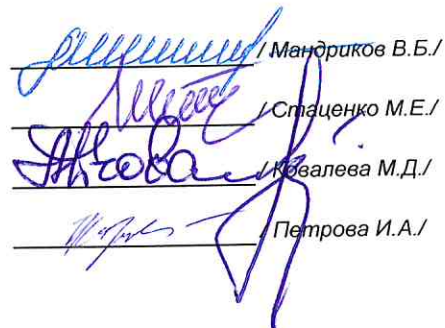 / Мандриков В.Б./
/ Стаценко М.Е./
/ Ковалева М.Д./
/ Петрова И.А./